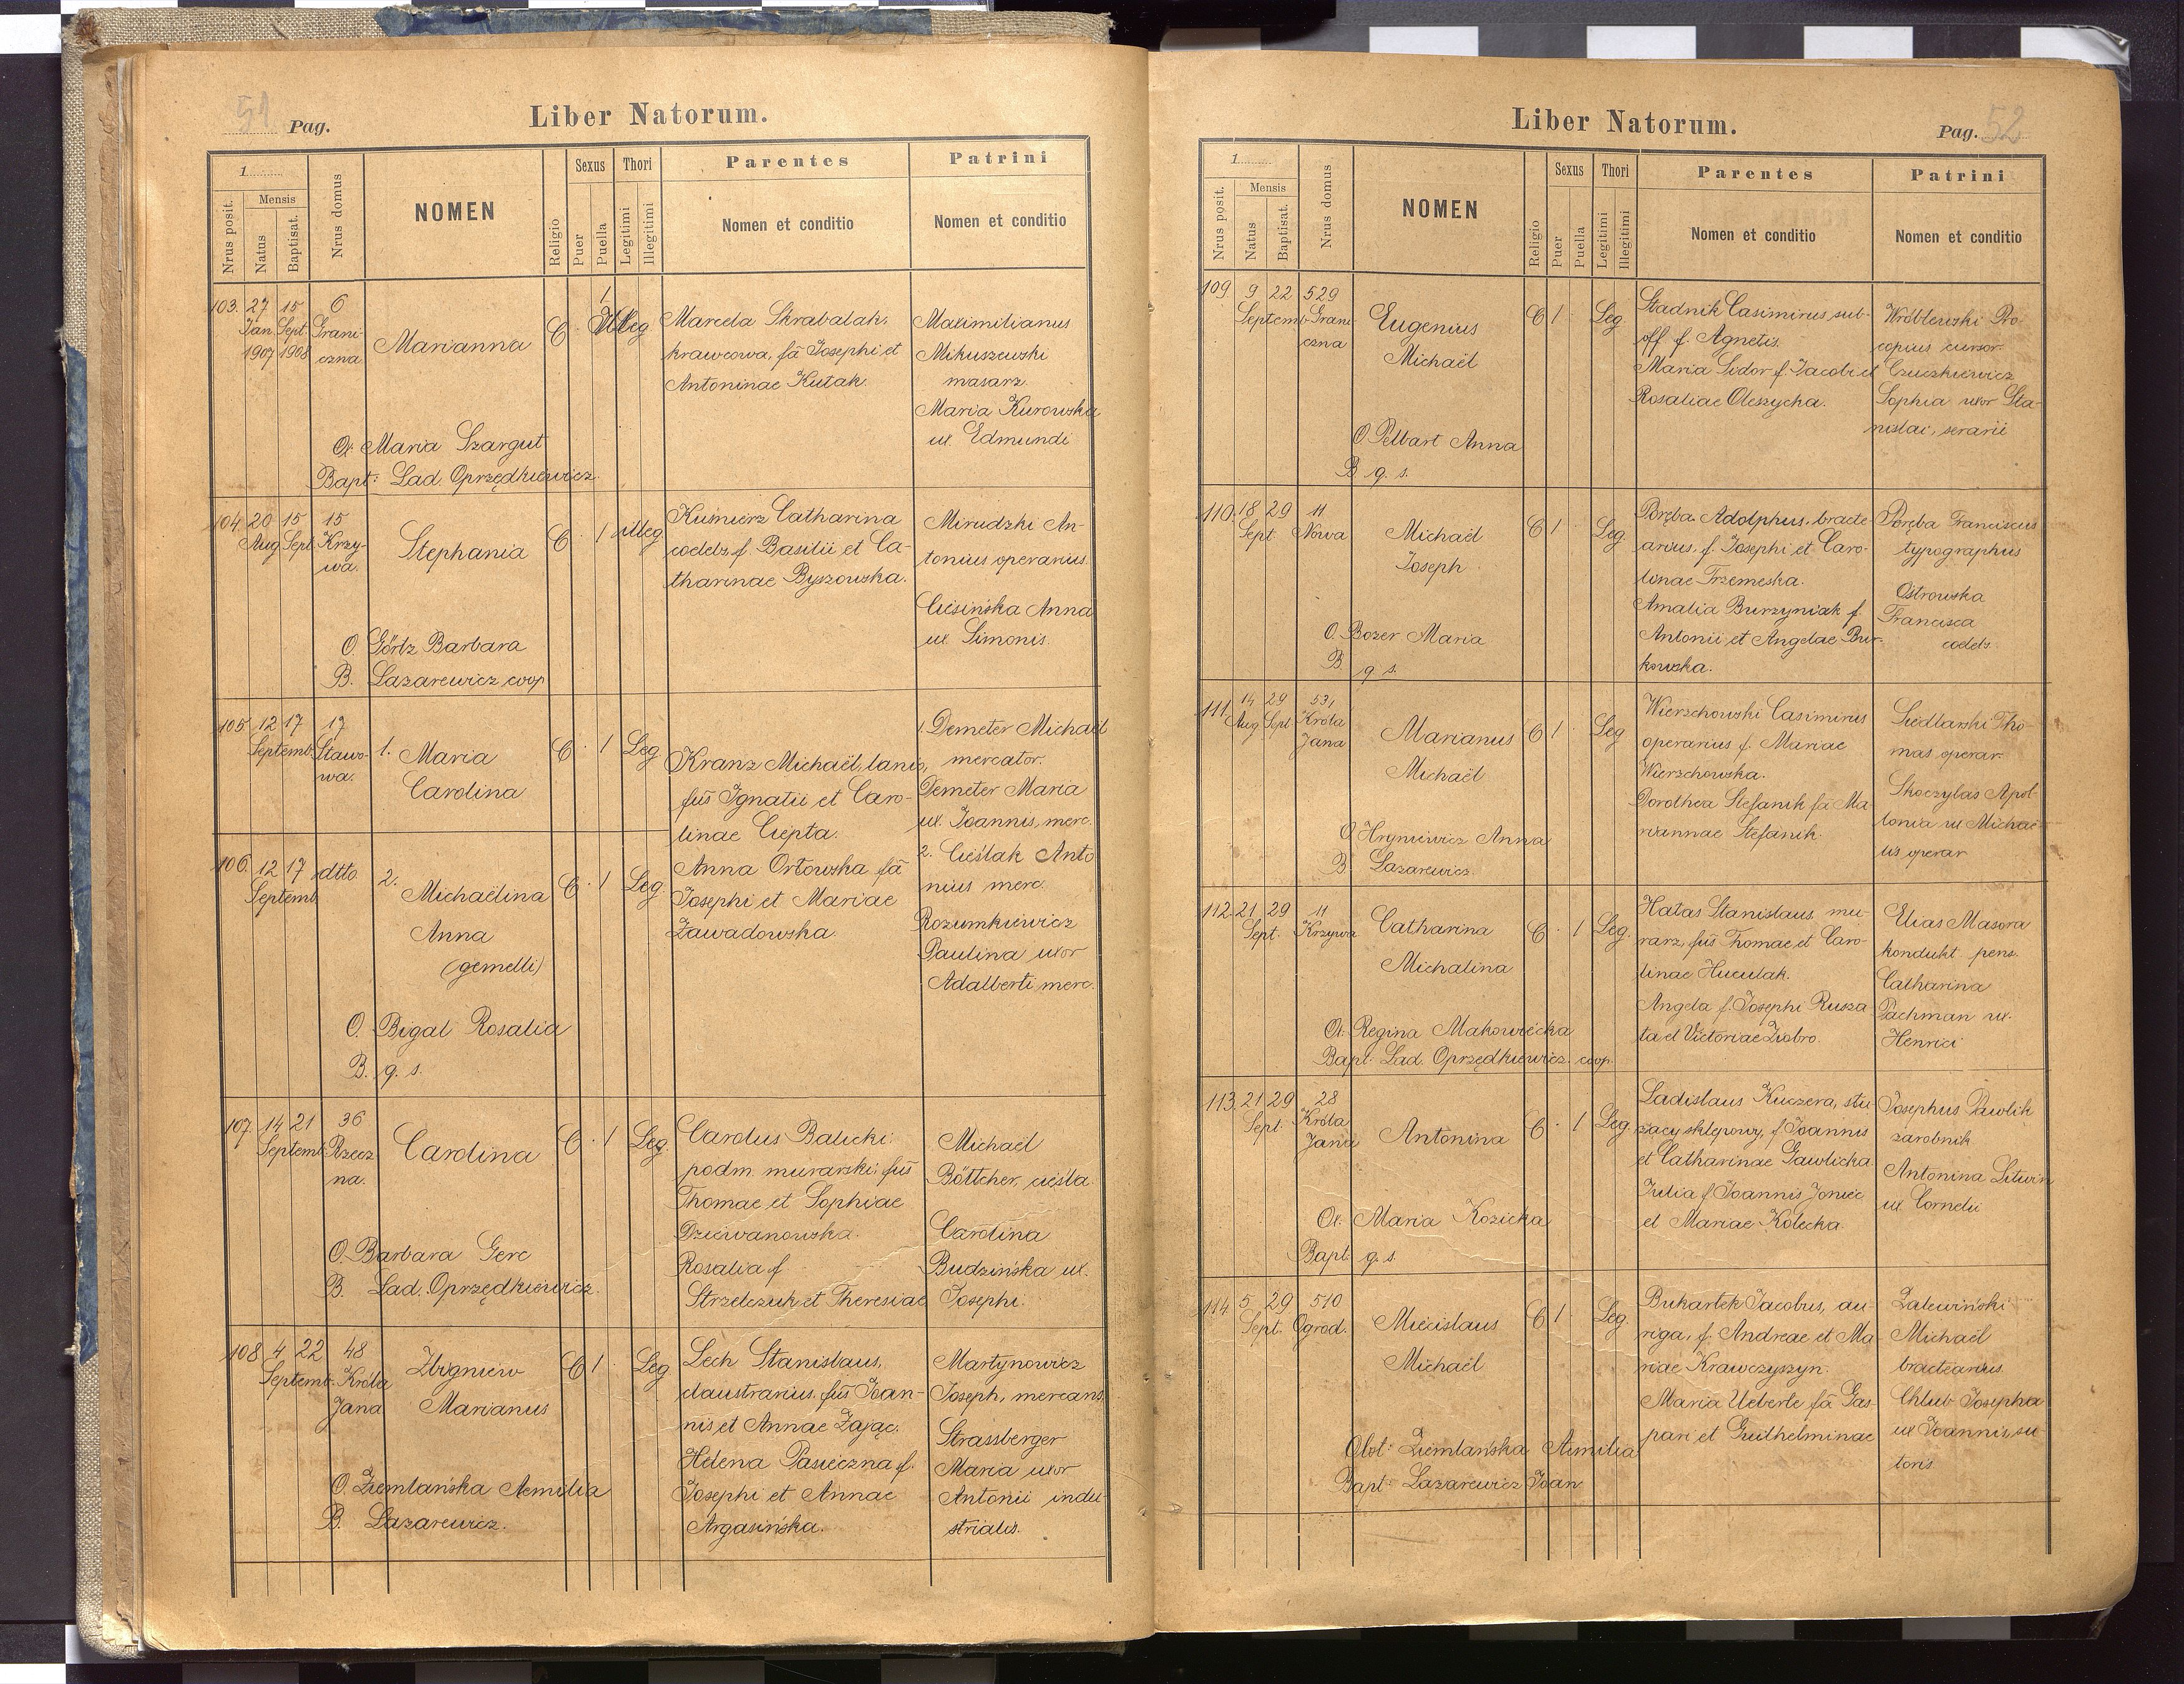 51 Pag.
Liber Natorum.
1.
Nrus posit.
Mensis
Natus
Baptisat.
Nrus domus
NOMEN
Religio
Sexus
Puer
Puella
Thori
Legitimi
Illegitimi
Parentes
Nomen et conditio
Patrini
Nomen et conditio
103. 27 15 6
Jan. Sept. Grani-
1907 1908 czna
Marianna
C 1 Illeg
Marcela Skrabalak,
krawcowa, fa Josephi et
Antoninae Kutak.
Maximilianus
Mikuszewski
masarz.
Maria Kurowska
ux. Edmundi
Ob: Maria Szargut
Bapt: Lad. Oprzędkiewicz.
104 20 15 15
Aug Sept Krzy-
wa.
Stephania
C 1 illeg
Kusmierz Catharina
coelebs, f. Basilii et Ca-
tharinae Byszowska.
Mirudzki An-
tonius operarius.
Ciesińska Anna
ux. Simonis.
O. Görtz Barbara
B. Lazarewicz coop
105 12 17 17
Septemb. Stawo-
wa.
1. Maria
Carolina
C 1 Leg
Kranz Michaël, lanio,
fus Ignatii et Caro-
linae Ciepta.
1. Demeter Michaël
mercator.
Demeter Maria
ux. Joannis, merc.
106. 12 17 dtto
Septemb
2. Michaëlina
Anna
(gemelli)
C 1 Leg.
Anna Orłowska fa
Josephi et Mariae
Zawadowska.
2. Cieślak Anto
nius merc.
Rozumkiewicz
Paulina uxor
Adalberti merc.
O. Bigal Rosalia
B. q. s.
107. 14 21 36
Septemb Rzecz
na.
Carolina
C 1 Leg.
Carolus Balicki
podm. murarski, fus
Thomae et Sophiae
Dziewanowska.
Rosalia f
Strzelczuk et Theresiae
Michael
Böttcher, cieśla
Carolina
Budzińska ux.
Josephi.
O. Barbara Gerc
B. Lad. Oprzędkiewicz.
108. 4 22 48
Septemb. Króla
Jana
Zbigniew
Marianus
C 1 Leg
Lech Stanislaus,
claustrarius, fus Joan-
nis et Annae Zając.
Helena Pasieczna f.
Josephi et Annae
Argasińska.
Martynowicz
Joseph, mercans.
Strassberger
Maria uxor
Antonii indu-
strialis.
O. Ziemlańska Aemilia
B. Lazarewicz.
Liber Natorum.
Pag. 52
1.
Nrus posit.
Mensis
Natus
Baptisat.
Nrus domus
NOMEN
Religio
Sexus
Puer
Puella
Thori
Legitimi
Illegitimi
Parentes
Nomen et conditio
Patrini
Nomen et conditio
109. 9 22 529
Septemb Grani
czna
Eugenius
Michaël
C 1 Leg.
Stadnik Casimirus, sub-
off f. Agnetis.
Maria Sidor f. Jacobi et
Rosaliae Oleszycha.
Wróblewski Pro-
copius cursor.
Czuczkiewicz
Sophia uxor Sta-
nislai, serarii
O Pelbart Anna
B q. s.
110. 18 29 11
Sept. Nowa
Michaël
Joseph
C 1 Leg.
Poręba Adolphus, bracte
arius, f. Josephi et Caro-
linae Trzemeska.
Amalia Burzyniak f.
Antonii et Angelae Bur-
kowska.
Poręba Franciscus
typographus
Ostrowska
Francisca
coelebs.
O. Bozer Maria
B q s.
111. 14 29 531
Aug Sept. Króla
Jana
Marianus
Michaël
C 1 Leg
Wierzchowski Casimirus
operarius f. Mariae
Wierzchowska.
Dorothea Stefanik fa Ma
riannae Stefanik.
Siedlarski Tho-
mas operar.
Skoczylas Apol-
lonia ux Michaë-
lis operar
O Hryniewicz Anna
B. Lazarewicz.
112. 21 29 11
Sept. Krzywa
Catharina
Michalina
C 1 Leg.
Hałas Stanislaus, mu-
rarz, fus Thomae et Caro-
linae Huculak.
Angela f. Josephi Rusza-
ta et Victoriae Ziobro.
Elias Masora
kondukt. pens.
Catharina
Pachman ux.
Henrici
Ob: Regina Makowiecka
Bapt: Lad. Oprzędkiewicz. coop.
113. 21 29 28
Sept. Króla
Jana
Antonina
C 1 Leg.
Ladislaus Kuczera, słu-
żący sklepowy, f Joannis
et Catharinae Gawlicka.
Julia f Joannis Joniec
et Mariae Kolecka.
Josephus Pawlik
zarobnik
Antonina Litwin
ux. Cornelii
Ob: Maria Kozicka
Bapt: q. s.
114. 5 29 510
Sept. Ogrod.
Miecislaus
Michaël
C 1 Leg.
Bukartek Jacobus, au-
riga, f. Andreae et Ma
riae Krawczyszyn.
Maria Ueberle fa Gas-
pari et Guilhelminae
Zalewiński
Michaël
bractearius.
Chlub Josepha
ux Joannis su
toris
Obst: Ziemlańska Aemilia
Bapt: Lazarewicz Joan